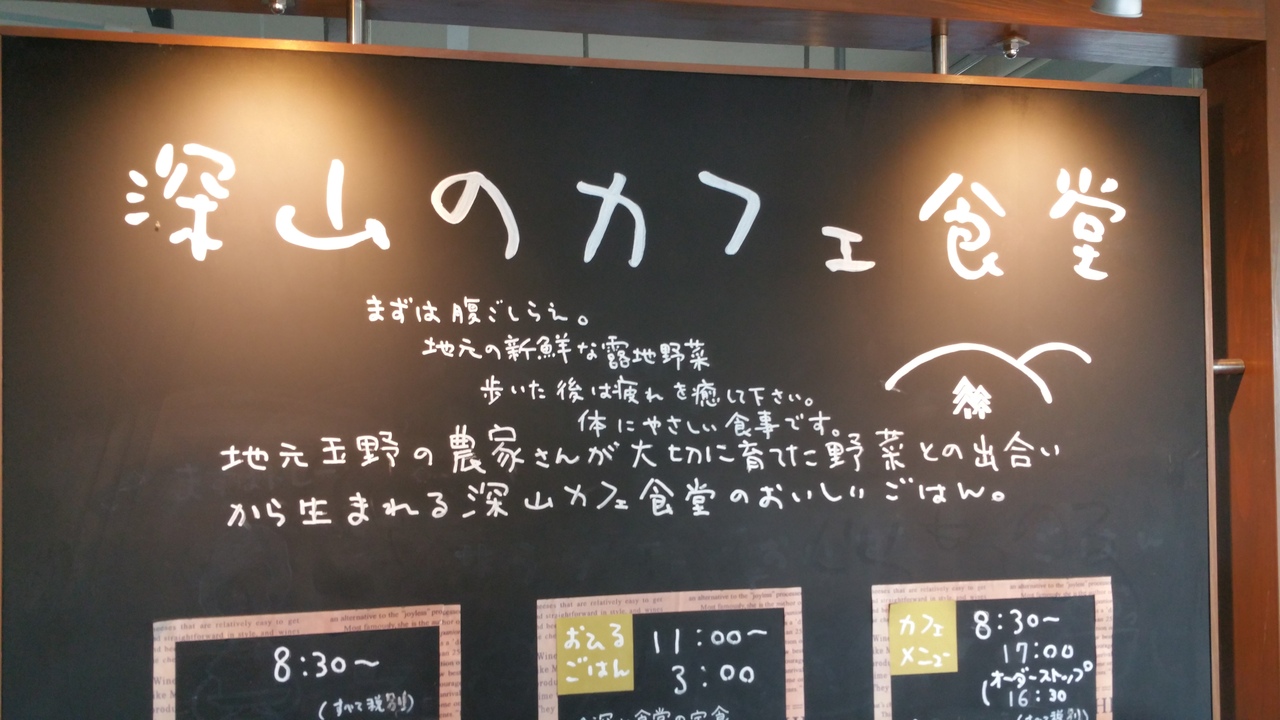 深山のカフェ食堂
まずは腹ごしらえ。
地元の新鮮な露地野菜
歩いた後は疲れを癒して下さい。
体にやさしい食事です。
地元玉野の農家さんが大切に育てた野菜との出合い
から生まれる深山カフェ食堂のおいしいごはん。
8:30〜
(すべて税別)
おひる
ごはん
11:00〜
3:00
カフェ
メニュー
8:30〜
17:00
(オーダーストップ
16:30
(すべて税別)